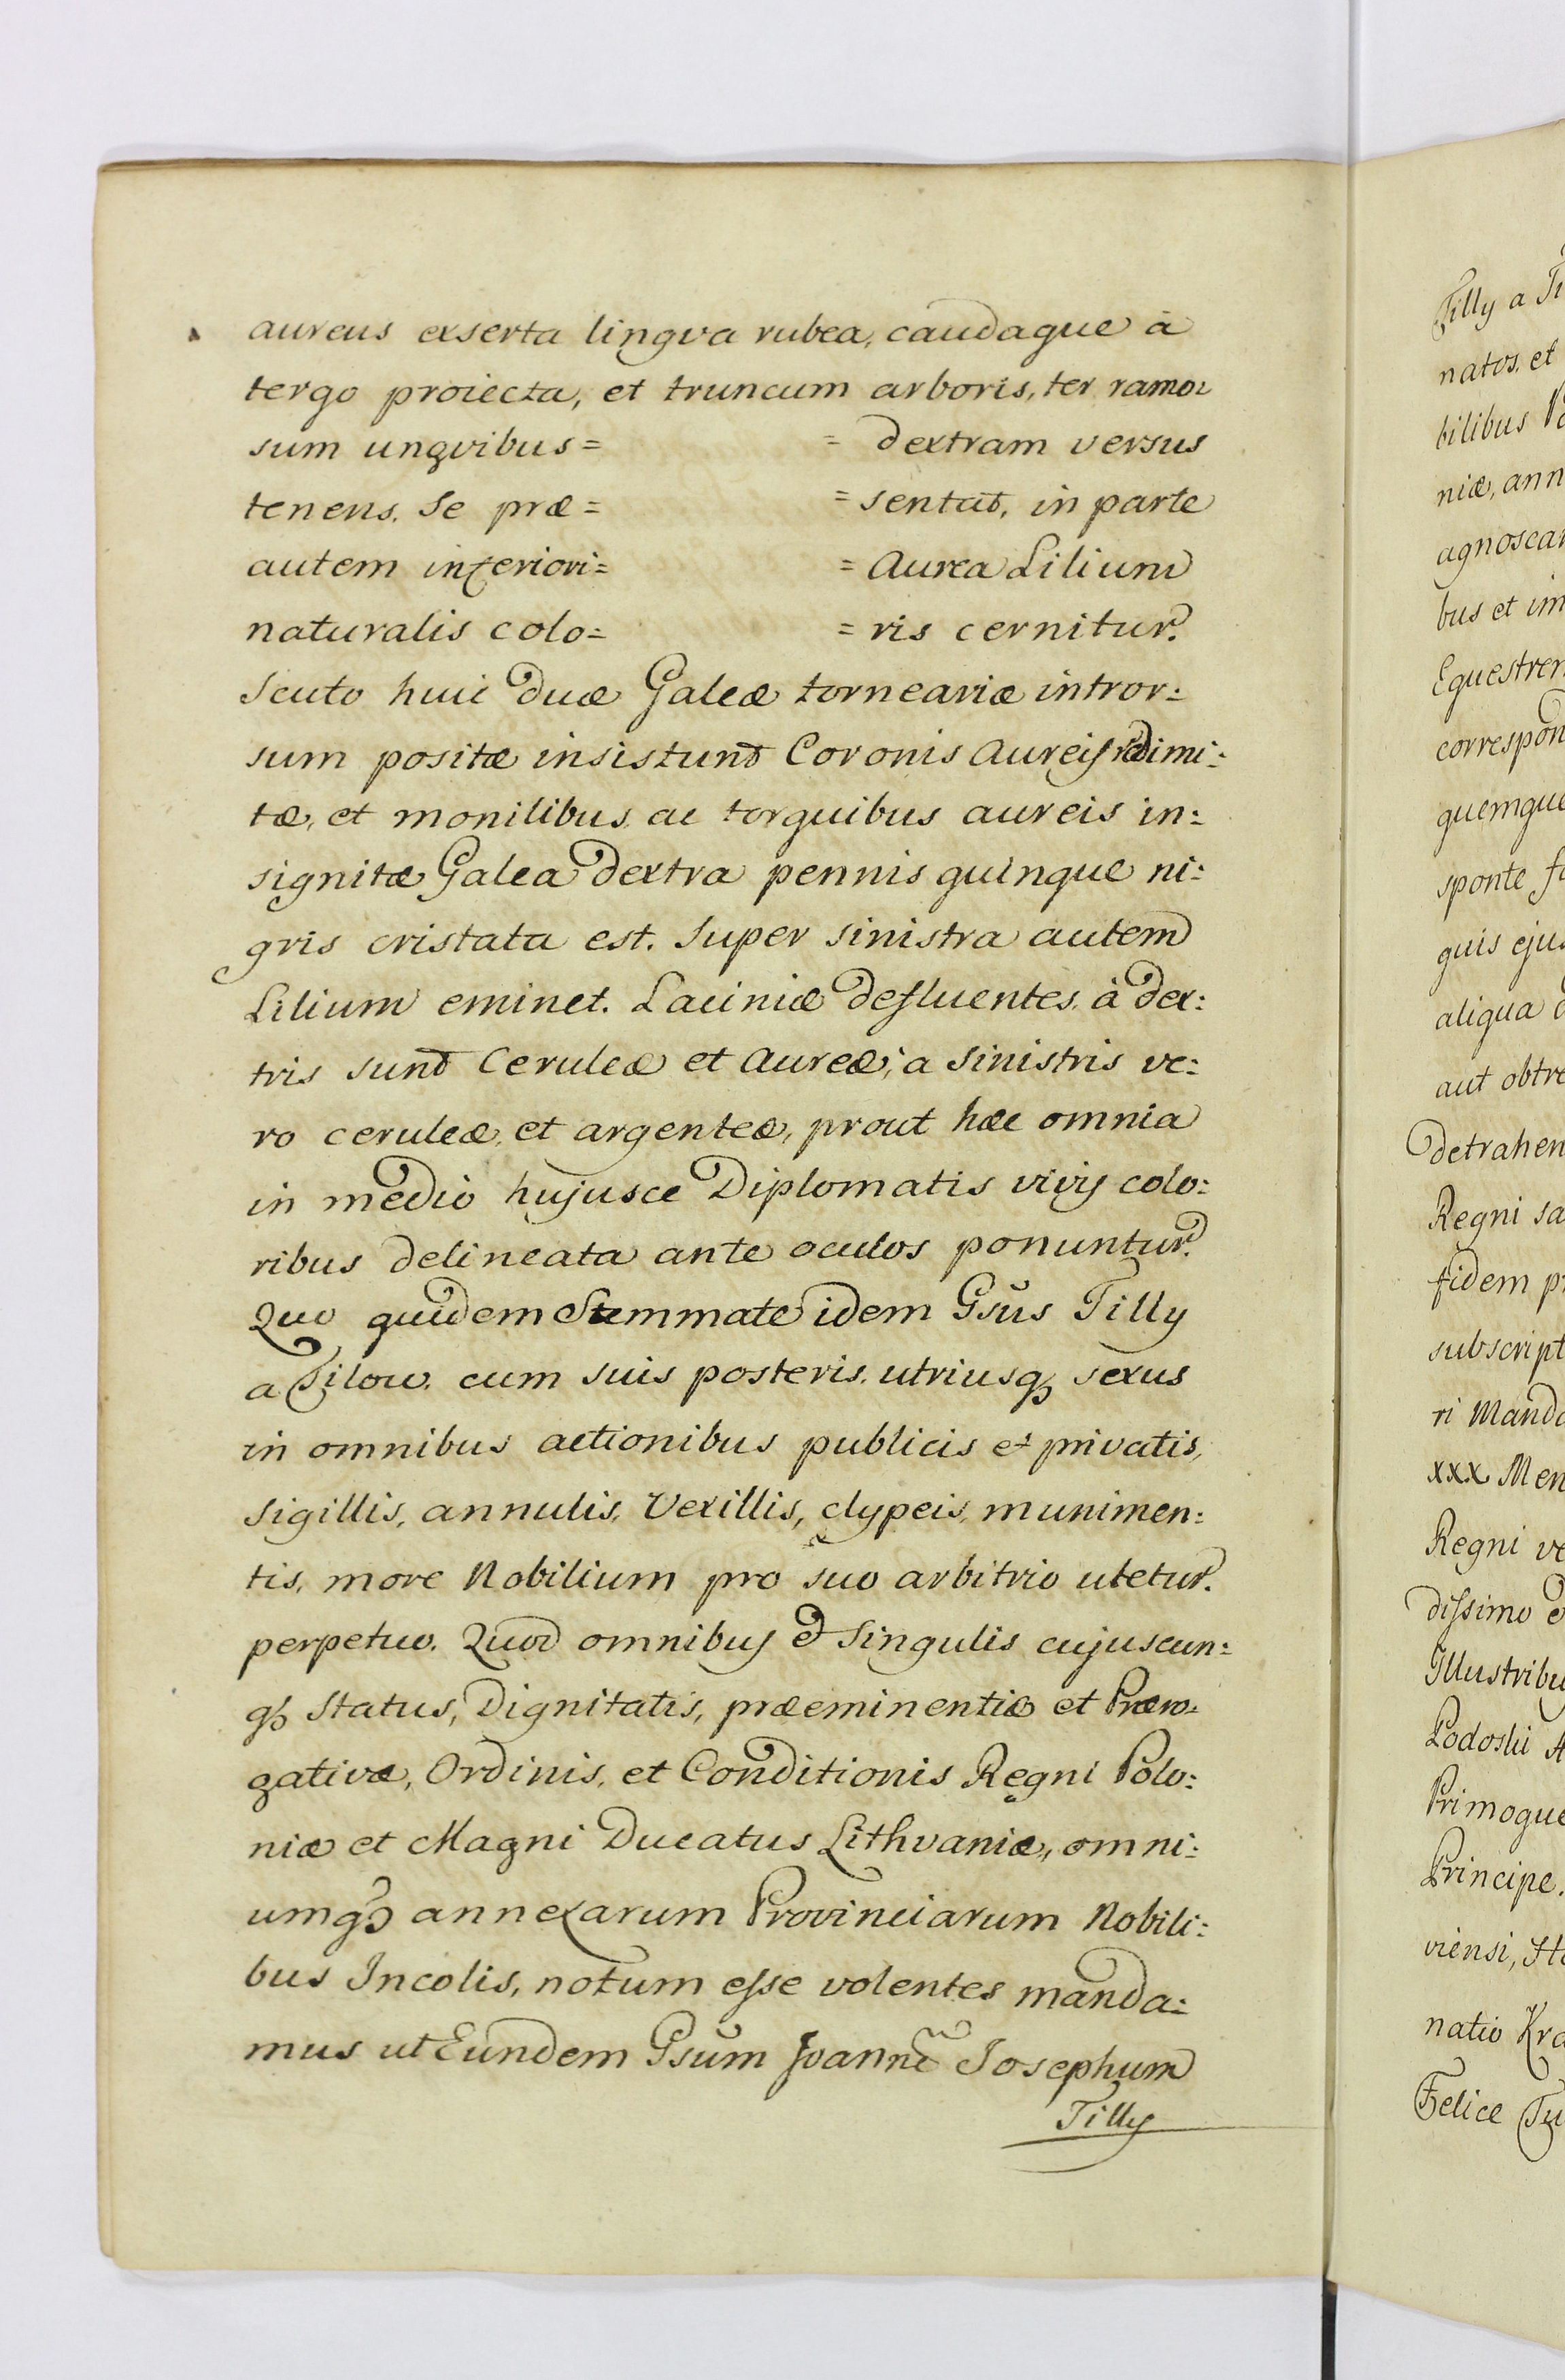 aureus exserta lingva rubea, caudaque à
tergo proiecta, et truncum arboris, ter ramo:
sum ungvibus= = dextram versus
tenens. Se præ= = sentat, in parte
autem inferiori= = Aurea Lilium
naturalis colo= = ris cernitur.
Scuto huic duæ Galeæ torneariæ intror:
sum positæ insistunt Coronis Aureis redimi:
tæ, et monilibus ac torquibus aureis in:
signitæ Galea dextra pennis quinque ni:
gris cristata est. Super sinistra autem
Lilium eminet. Laciniæ defluentes à dex:
tris sunt Ceruleæ et Aureæ, a Sinistris ve:
ro ceruleæ, et argenteæ, prout hæc omnia
in medio hujusce Diplomatis vivis colo:
ribus delineata ante oculos ponuntur.
Quo quidem Stemmate idem Gsūs Tilly
a Tilow. cum suis posteris. utriusq₃ sexus
in omnibus actionibus publicis et privatis,
Sigillis, annulis, Vexillis, clypeis, munimen:
tis, more Nobilium pro suo arbitrio utetur.
perpetuo. Quod omnibus et Singulis cujuscun:
q₃ Status, Dignitatis, præeminentiæ et Præro:
gativæ, Ordinis, et Conditionis Regni Polo:
niæ et Magni Ducatus Lithvaniæ, omni:
umq₃ annexarum Provinciarum Nobili:
bus Incolis, notum esse volentes manda:
mus ut Eundem Gsūm Joannē Josephum
Tilly
Tilly a Ti
natos, et
bilibus
niæ, ann
agnoscan
bus et im
Equestrem
correspon
quemque
sponte
quis ejus
aliqua
aut obtre
detrahen
Regni sa
fidem p
subscript
ri Manda
xxx Men
Regni ve
dissimo
Illustribu
Podoski A
Primoque
Principe.
viensi,
natio Kra
Felice